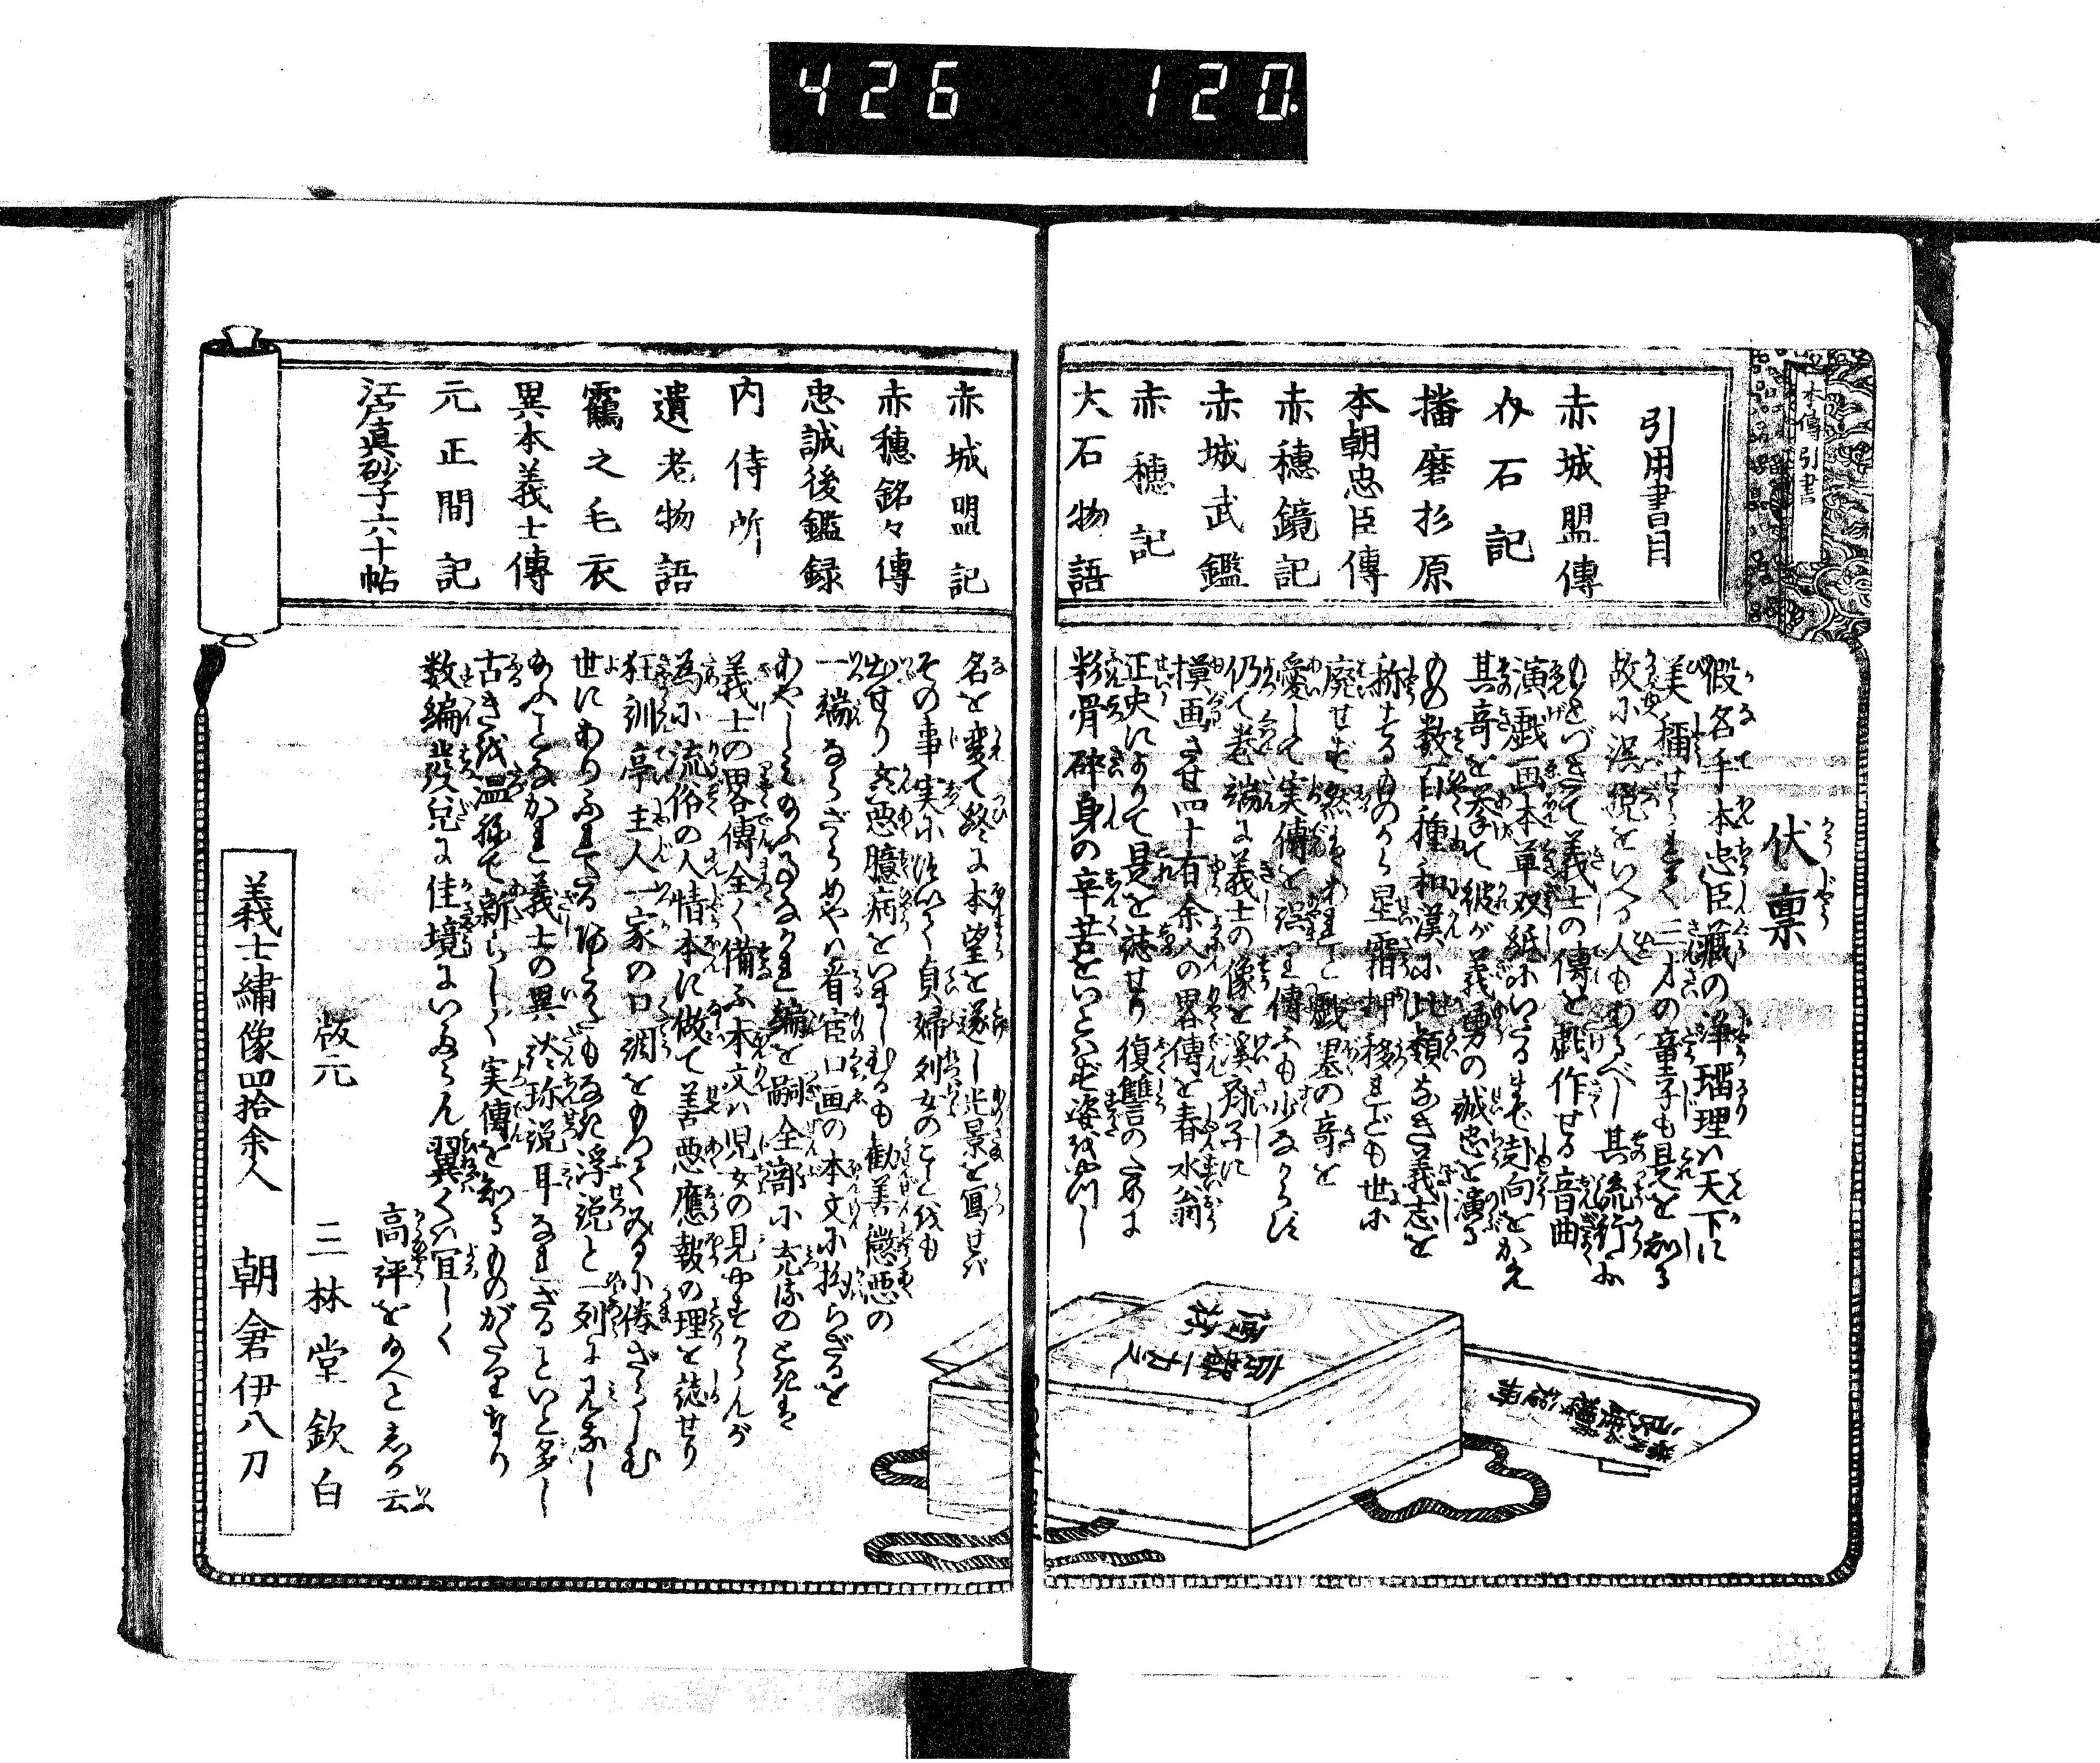 426 120.
本傳引書
引用書目
赤城盟傳
介石記
播磨杉原
本朝忠臣傳
赤穗鏡記
赤城武鑑
赤穗記
大石物語
伏稟
假名手本忠臣藏の浄瑠理ハ天下に
美稱せられて三才の童子も是を知る
故に誤説をいへる人もあるべし其流行に
もとづきて義士の傳を戯作せる音曲
演戯画本草双紙にいたるまで趣向をかえ
其奇を挙て彼が義勇の誠忠を演る
もの数百種和漢に比類なき義志を
称するものから星霜押移れども世に
廃せず然ばあれど戯墨の奇を
愛して実傳を誤り傳ふも少なからず
仍て巻端に義士の像を溪斉子に
摸画させ四十有余人の畧傳を春水翁
正史によりて是を誌せり復讐の為に
粉骨碎身の辛苦をいとはず姿を
名を変て終に本望を遂し光景を寫せバ
その事実に
貞婦列女のことをも
出せり
悪臆病をいましむるも勧善懲悪の
一端ならざらめやハ看官口画の本文に拘らざるを
あやしみ給ふ事なかれ編を嗣全部に充るのときは
義士の畧傳全く備ふ本文ハ児女の見安からんが
為に流俗の人情本に做て善悪應報の理を誌せり
狂訓亭主人一家の口調をもつてみるに倦ざらしむ
世にありふれたる
浮説と一列に見なし
給ふことなかれ義士の異談珍説耳なれざるといと多し
古きを温ねて新らしく実傳を知るものがたりなり
数編發兌に佳境にいたらん翼くハ宜しく
高評を給へと云
版元 三林堂欽白
義士繡像四拾余人 朝倉伊八刀
赤城盟記
赤穗銘々傳
忠誠後鑑録
内侍所
遺老物語
鸖之毛衣
異本義士傳
元正間記
江戸真砂子六十帖